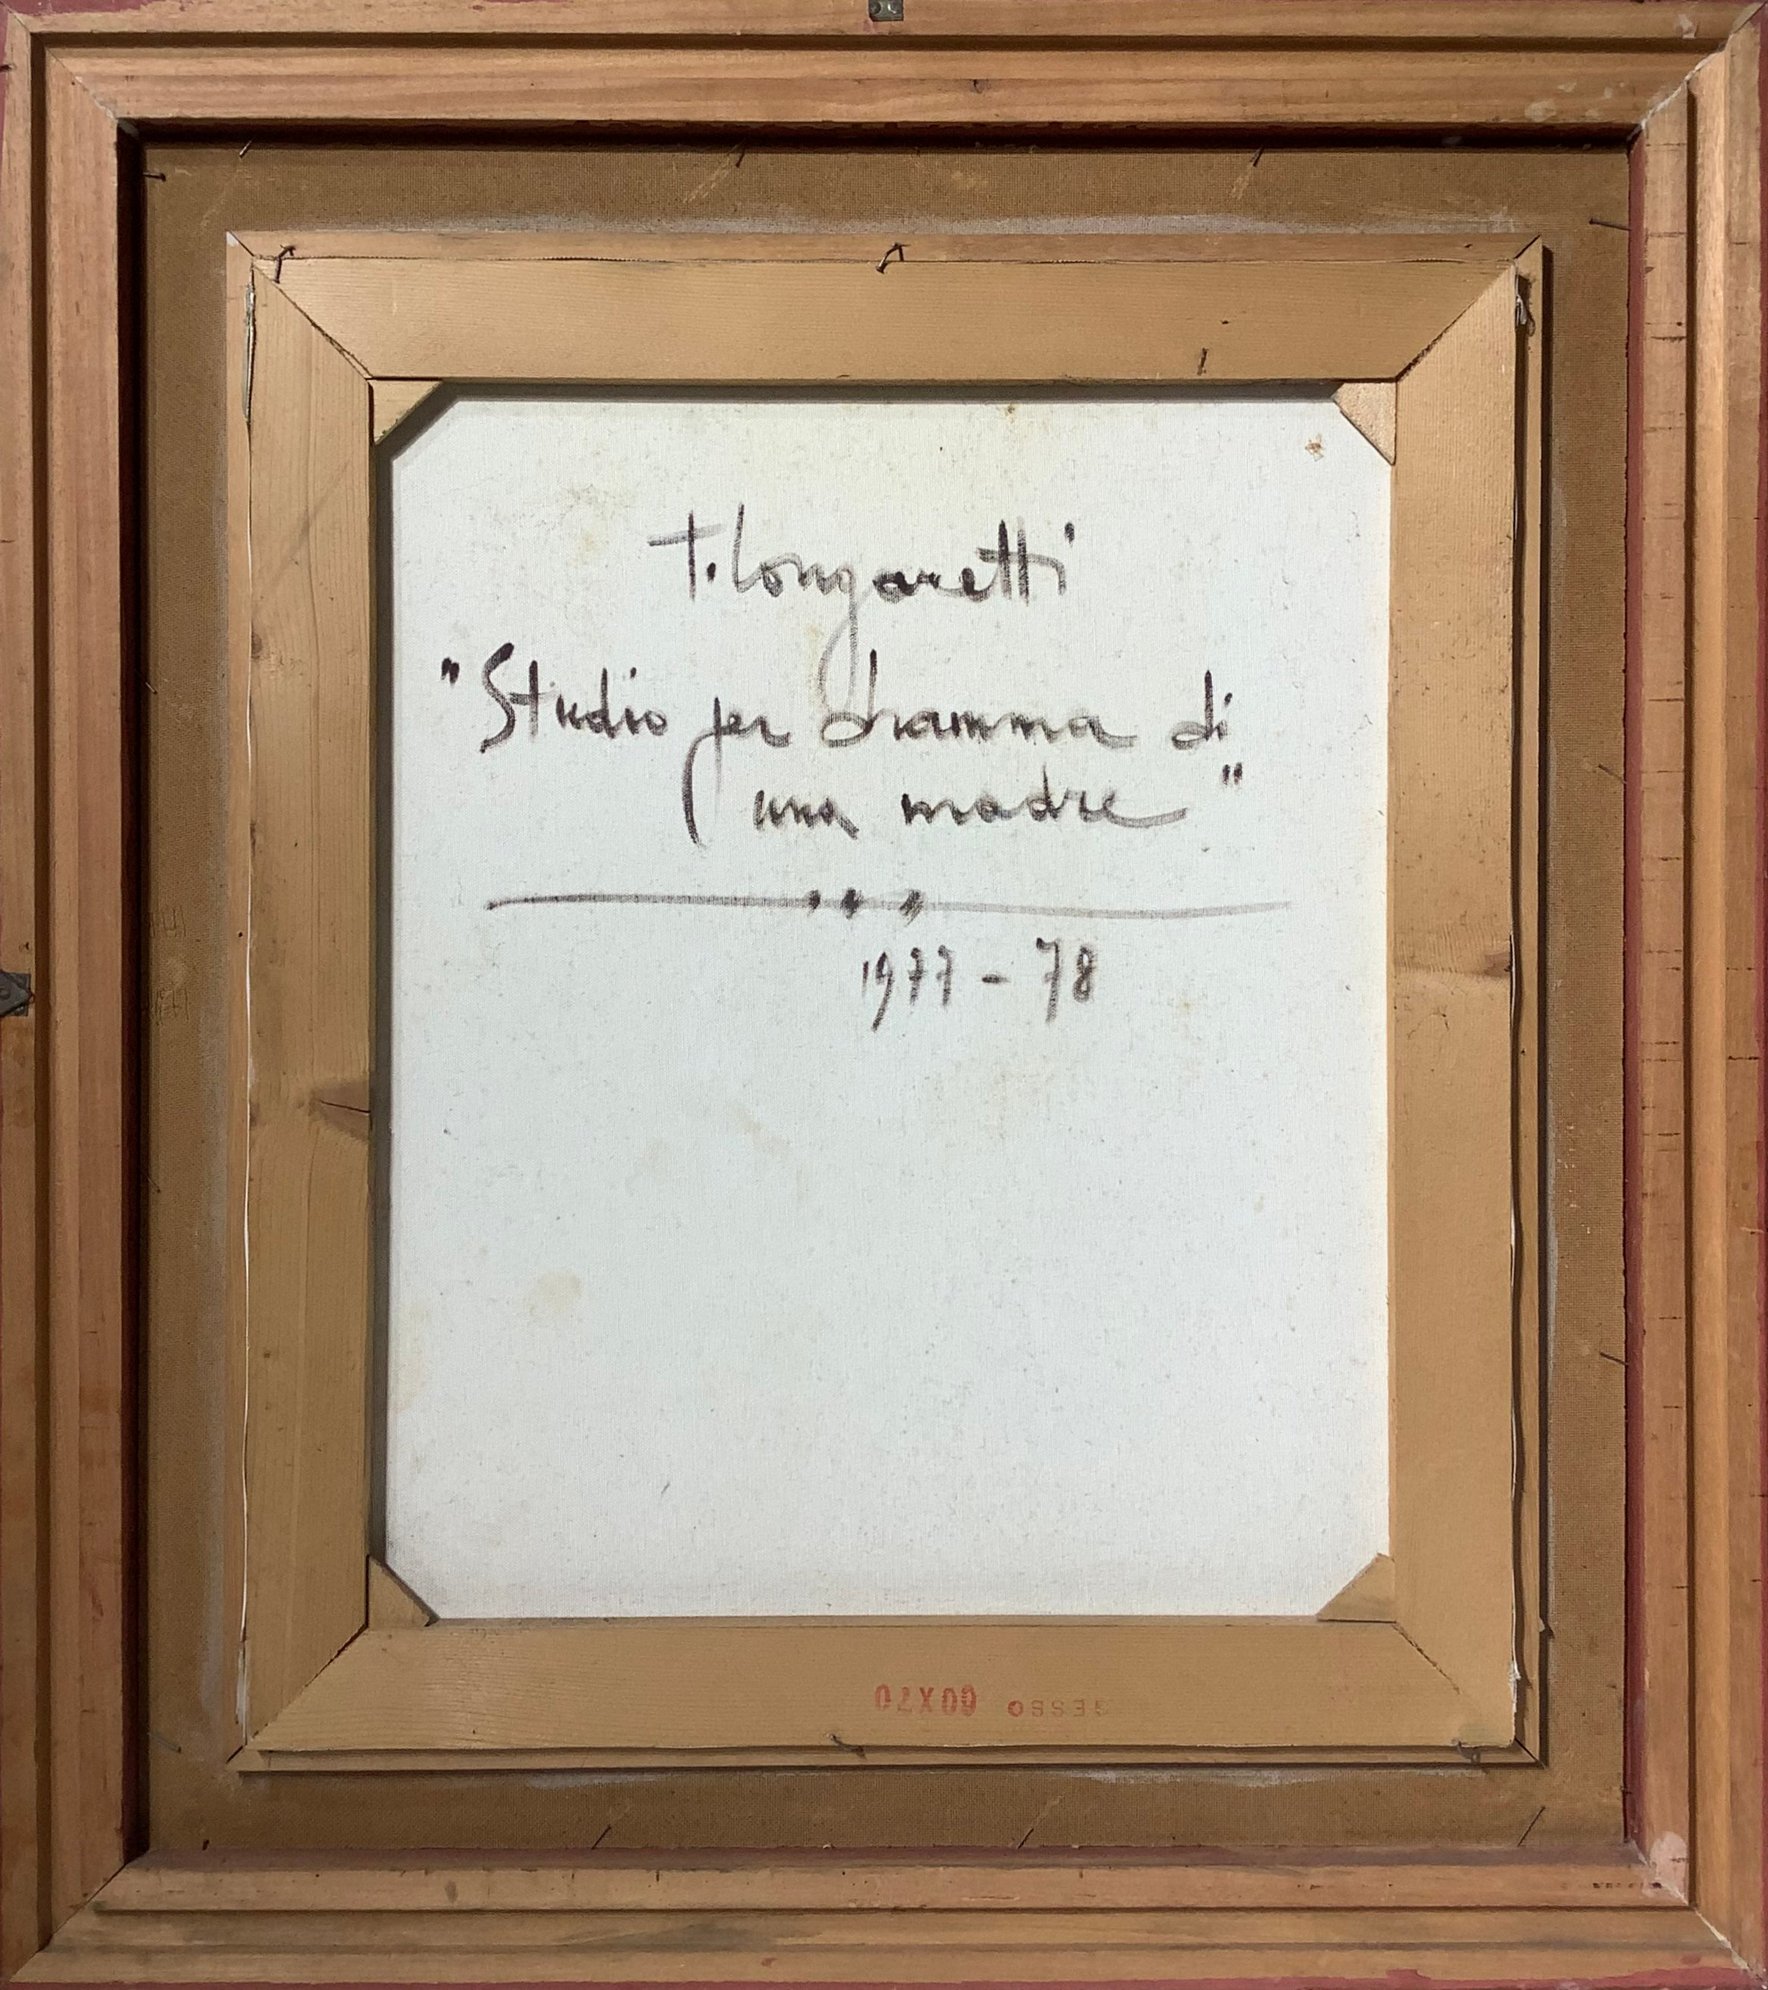 T. Longaretti
"Studio per dramma di
una madre"
1977 - 78
60X70 GESSO